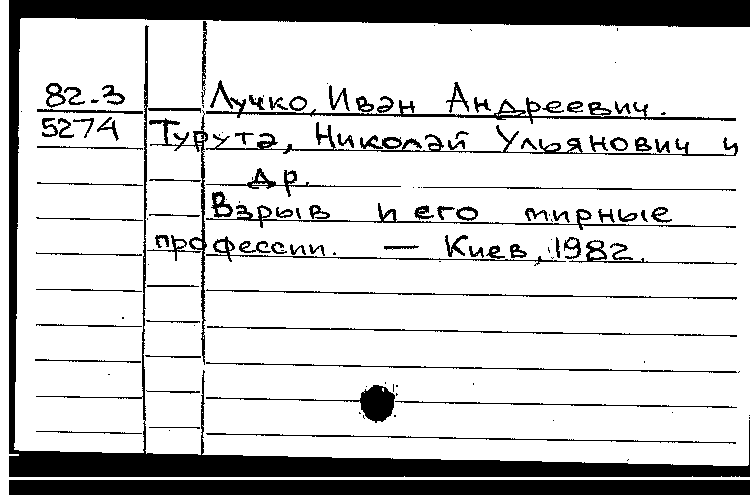 82-3 Лучко, Иван Андреевич.
5274 Турута, Николай Ульянович и
др.
Взрыв и его мирные
профессии. — Киев, 1982.